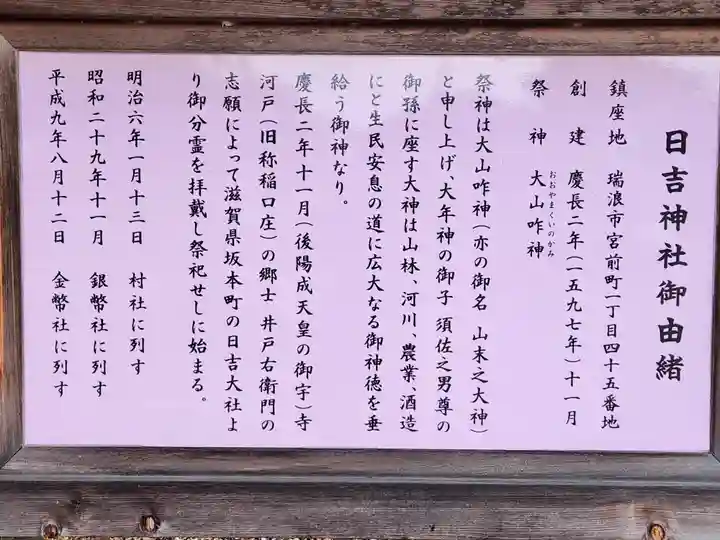 日吉神社御由緒
鎮座地 瑞浪市宮前町一丁目四十五番地
創建 慶長二年(一五九七年)十一月
祭神 大山咋神
おおやまくいのかみ
祭神は大山咋神(亦の御名 山末之大神)
と申し上げ、大年神の御子 須佐之男尊の
御孫に座す大神は山林、河川、農業、酒造
にと生民安息の道に広大なる御神徳を垂
給う御神なり。
慶長二年十一月(後陽成天皇の御宇)寺
河戸(旧称稲口庄)の郷士 井戸右衛門の
志願によって滋賀県坂本町の日吉大社よ
り御分霊を拝戴し祭祀せしに始まる。
明治六年一月十三日 村社に列す
昭和二十九年十一月 銀幣社に列す
平成九年八月十二日 金幣社に列す